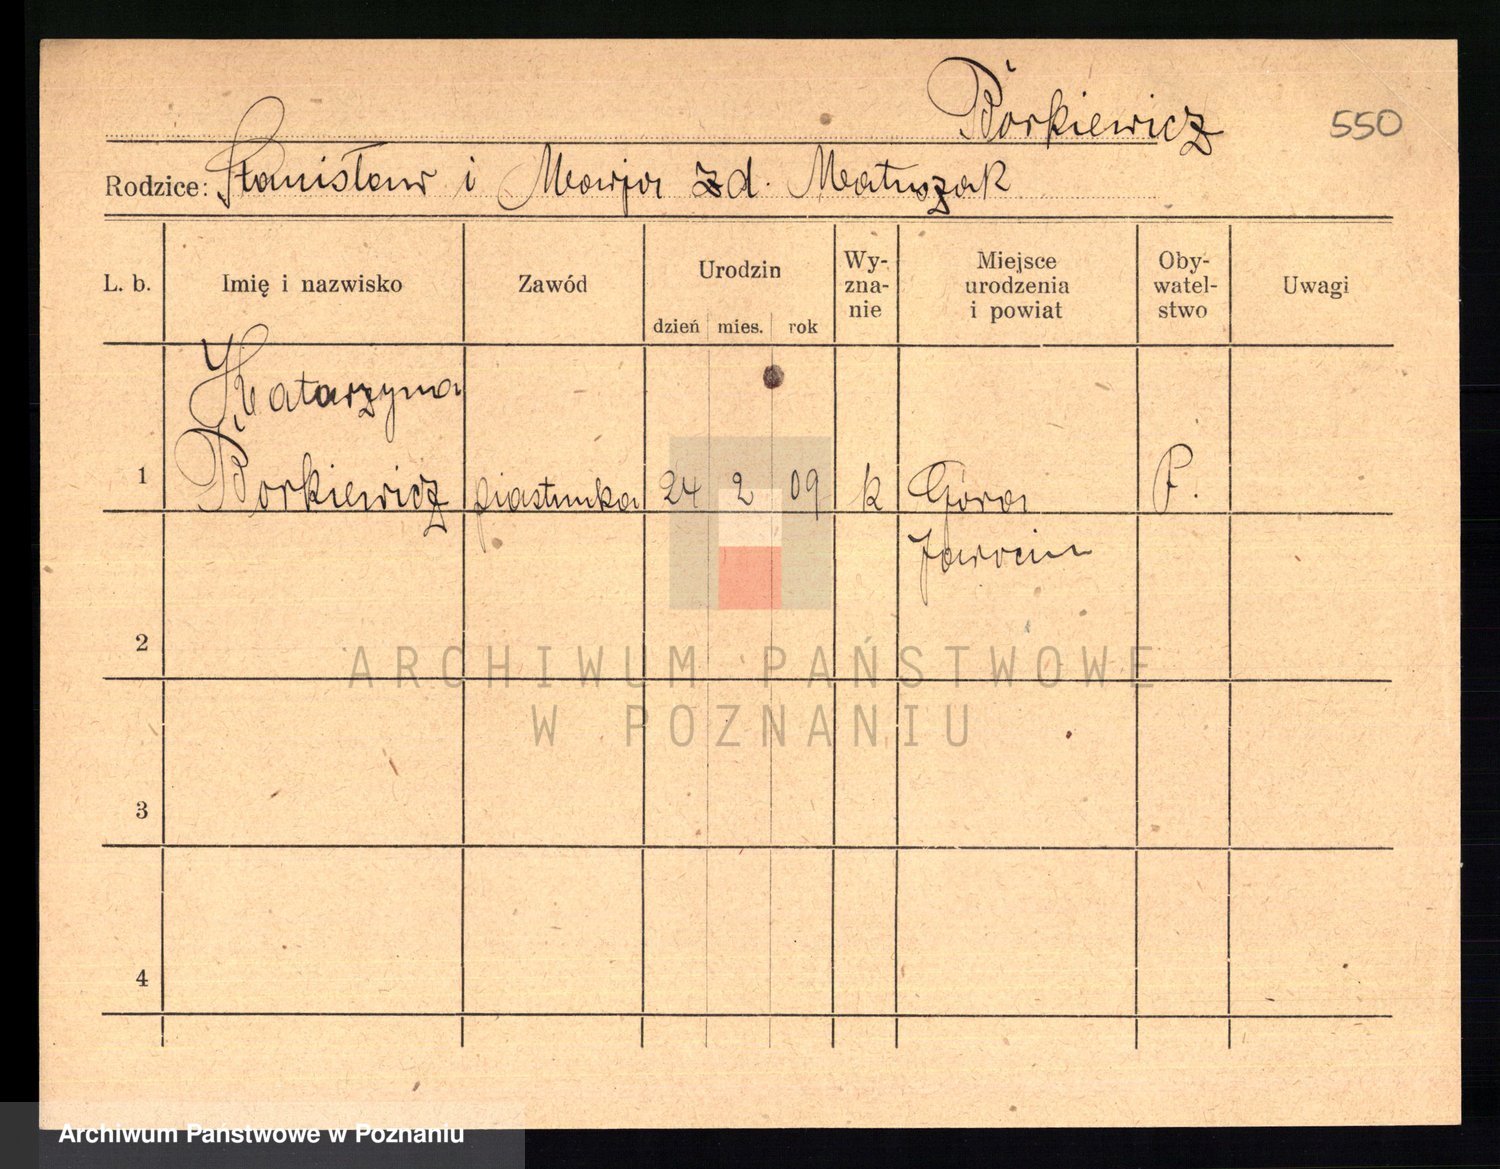 Borkiewicz 550
Rodzice: Stanisław i Marja zd. Matuszak
L. b. Imię i nazwisko Zawód Urodzin dzień mies. rok Wy-zna-nie Miejsce urodzenia i powiat Oby-watel-stwo Uwagi
Katarzyna
1 Borkiewicz piastunka 24 2 09 k Góra P.
Jarocin
2
ARCHIWUM PAŃSTWOWE
W POZNANIU
3
4
Archiwum Państwowe w Poznaniu